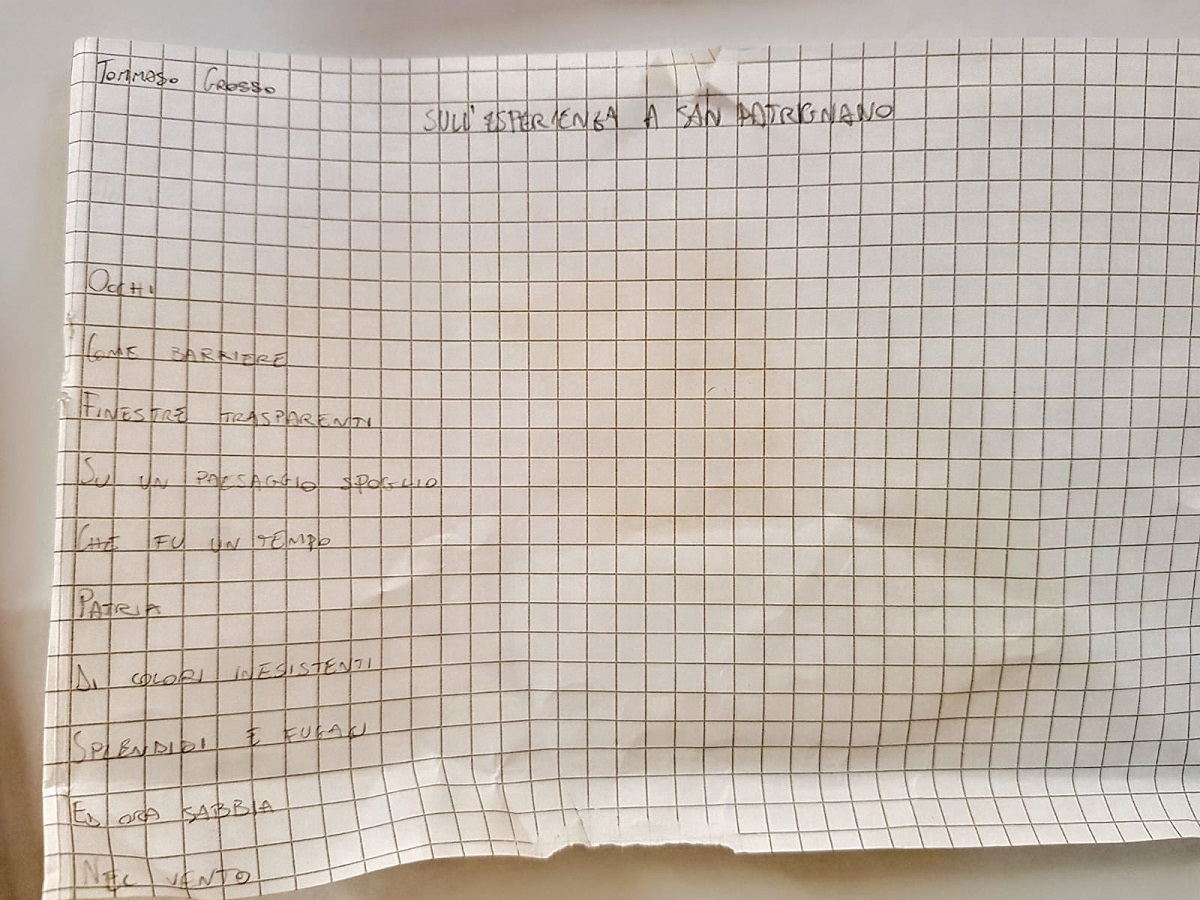 Tommaso Grosso
SULL'ESPERIENZA A SAN PATRIGNANO
Occhi
Come BARRIERE
FINESTRE TRASPARENTI
SU UN PAESAGGIO SPOGLIO
CHE FU UN TEMPO
PATRIA
DI COLORI INESISTENTI
SPLENDIDI E FUGACI
ED ORA SABBIA
NEL VENTO